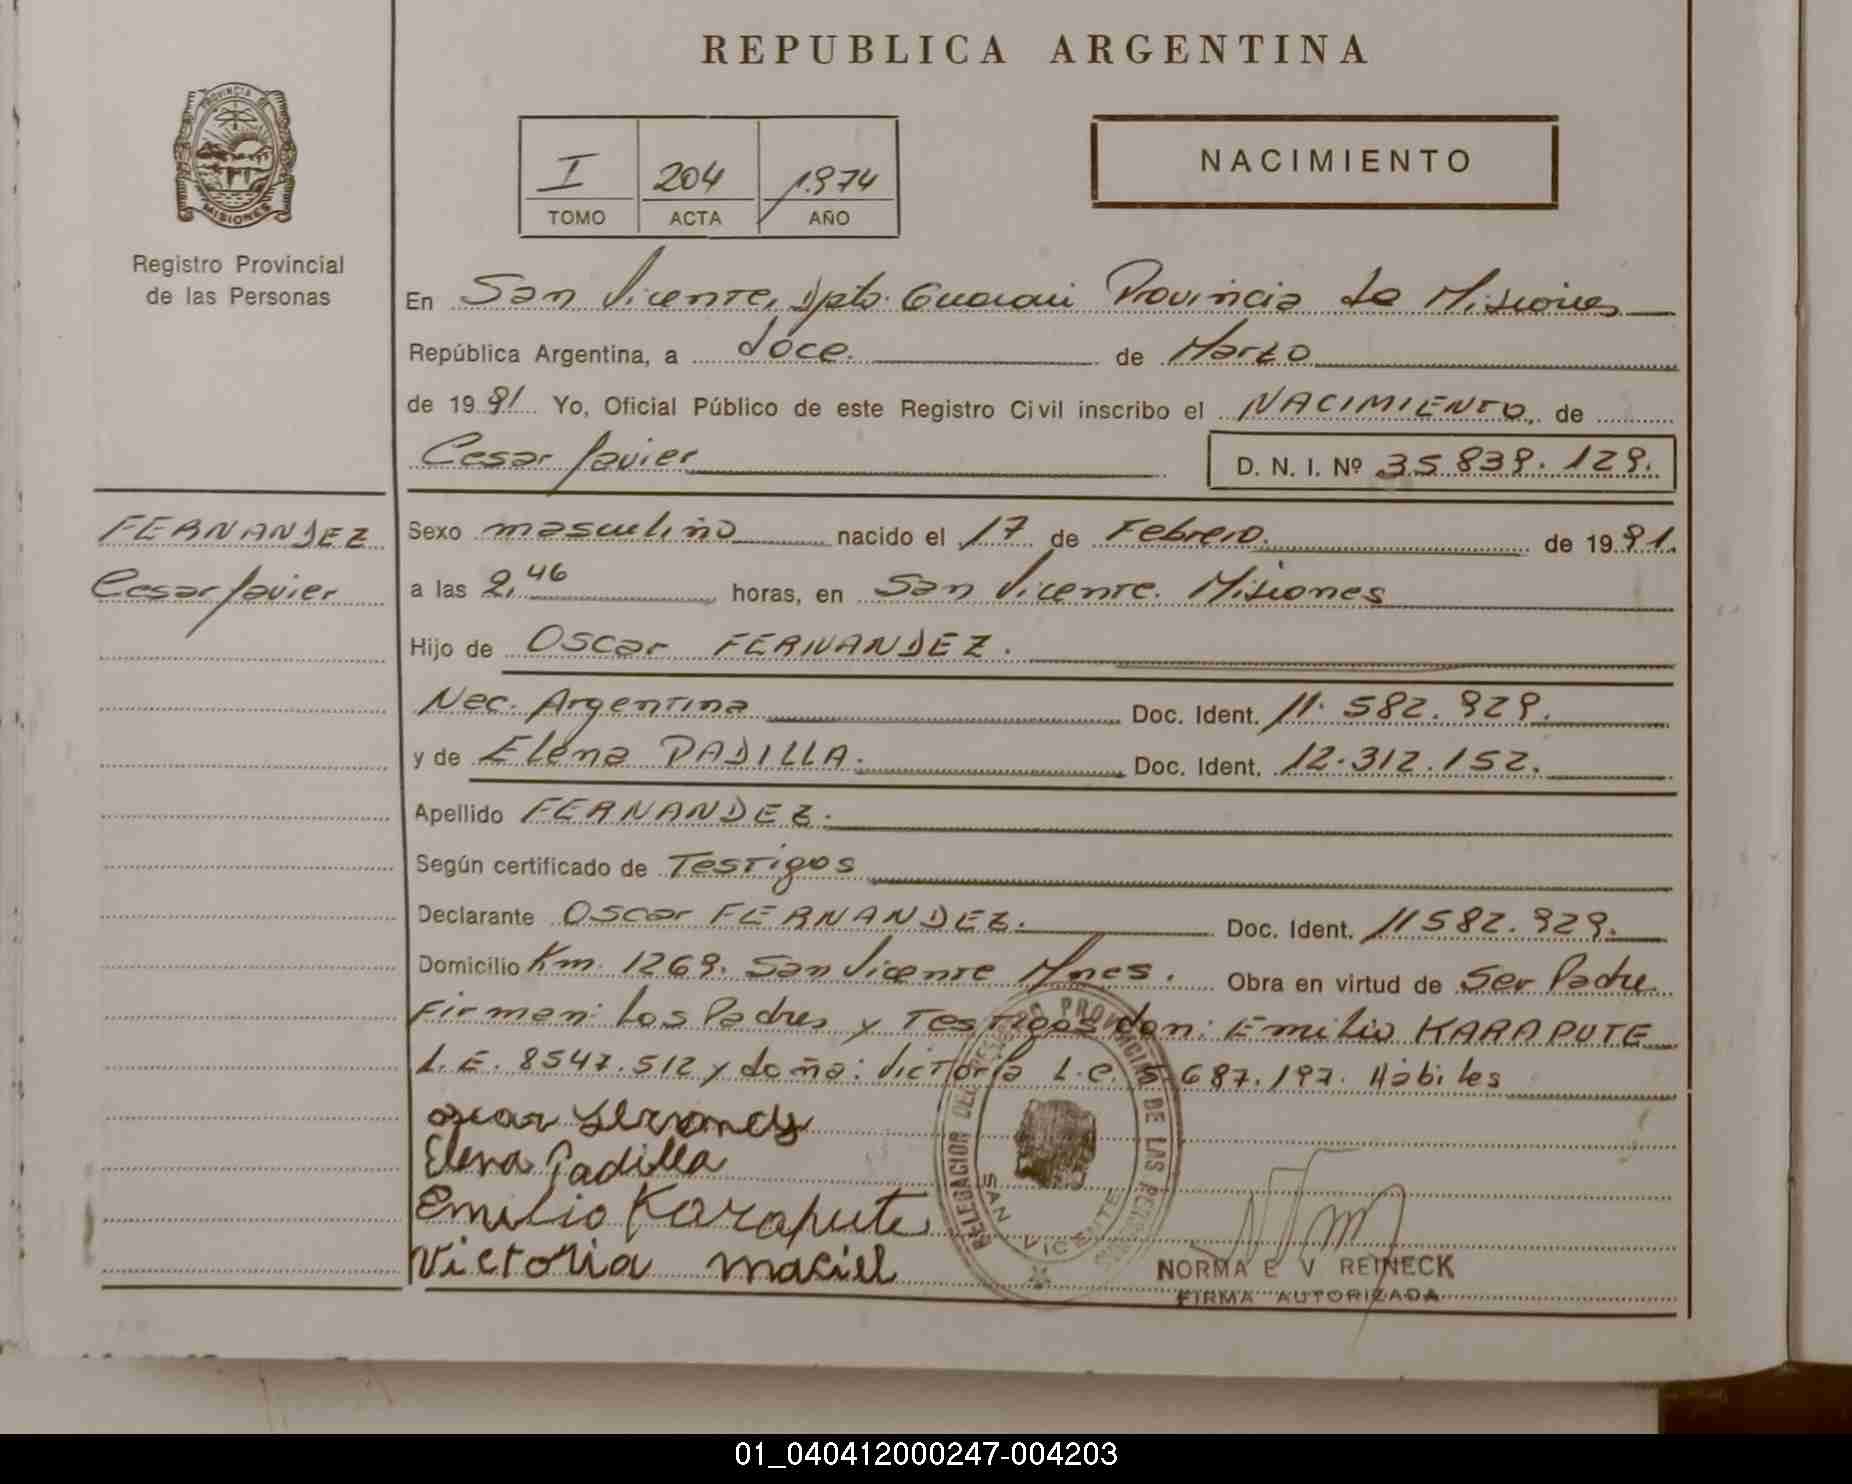 REPUBLICA ARGENTINA
PROVINCIA DE
MISIONES
Registro Provincial
de las Personas
I 204 1.974
TOMO ACTA AÑO
NACIMIENTO
En San Vicente, Dpto. Guarani Provincia de Misiones
República Argentina, a doce. de Marzo
de 19 91 Yo, Oficial Público de este Registro Civil inscribo el NACIMIENTO, de
Cesar Javier D. N. I. Nº 35.839.129.
FERNANDEZ
Cesar Javier
Sexo masculino nacido el 17 de Febrero. de 19 91.
a las 2,46 horas, en San Vicente. Misiones
Hijo de Oscar FERNANDEZ.
Nac. Argentina Doc. Ident. 11.582.929.
y de Elena PADILLA. Doc. Ident. 12.312.152.
Apellido FERNANDEZ.
Según certificado de Testigos
Declarante Oscar FERNANDEZ. Doc. Ident. 11582.929.
Domicilio Km. 1269. San Vicente Mnes. Obra en virtud de Ser Padre
Firman: Los Padres y Testigos don: Emilio KARAPUTE
L.E. 8547.512 y doña: Victoria L.C. 5.687.197. Hábiles
Elena Padilla
Emilio Karapute
Victoria maciel
SAN VICENTE
NORMA E V REINECK
FIRMA AUTORIZADA
01_040412000247-004203